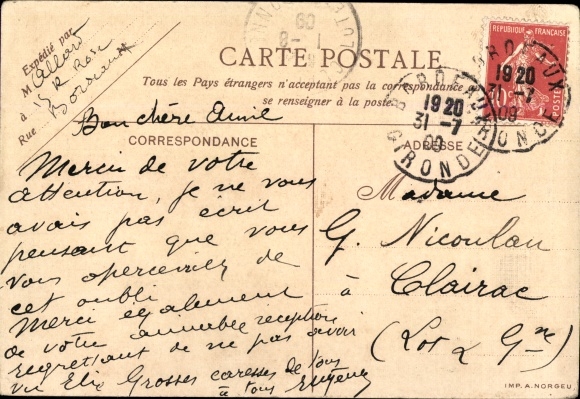 Expédié par
M Allard
à 15 R. Rose
Rue Bordeaux
CARTE POSTALE
Tous les Pays étrangers n'acceptant pas la correspondance
se renseigner à la poste
REPUBLIQUE FRANÇAISE
10c POSTES
BORDEAUX
19 20
31 -7
09
GIRONDE
BORDEAUX
19 20
31 -7
09
GIRONDE
LOT-ET-
8- 1
09
Bonchère Amie
CORRESPONDANCE
ADRESSE
Merci de votre
attention, je ne vous
avais pas écrit
pensant que vous
vous apercevriez de
cet oubli
Merci également
de votre aimable reception
regrettant de ne pas avoir
vu Elie Grosses caresses de tous
à tous
Madame
G. Nicoulau
à Clairac
(Lot & Gne)
IMP. A. NORGEU